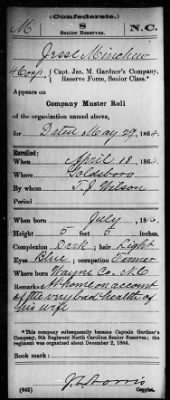 (Confederate.)
M 8 N.C.
Senior Reserves.
Jesse Minchew
4 Corp, Capt. Jas. M. Gardner's Company,
Reserve Force, Senior Class.*
Appears on
Company Muster Roll
of the organization named above,
for Dated May 29, 1864.
Enrolled:
When April 18, 1864.
Where Goldsboro
By whom T. J. Wilson
When born July, 18
Height 5 feet 6 inches.
Complexion Dark; hair Light
Eyes Blue; occupation Farmer
Where born Wayne Co. N.C
Remarks: At home on account
of the very bad health of
his wife
*This company subsequently became Captain Gardner's
Company, 8th Regiment North Carolina Senior Reserves; the
regiment was organized about December 2, 1864.
Book mark:
J. L. Norris
(642) Copyist.